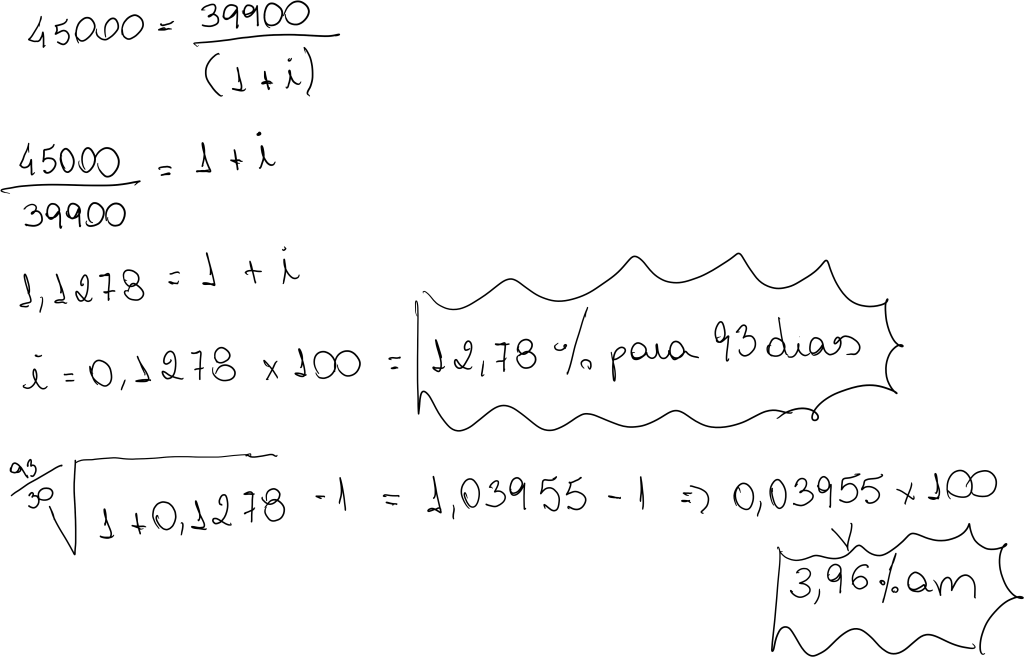 45000 = 39900 / (1 + i)
45000 / 39900 = 1 + i
1,1278 = 1 + i
i = 0,1278 x 100 = 12,78 % para 93 dias
93/30 √ 1 + 0,1278 - 1 = 1,03955 - 1 => 0,03955 x 100
3,96 % am